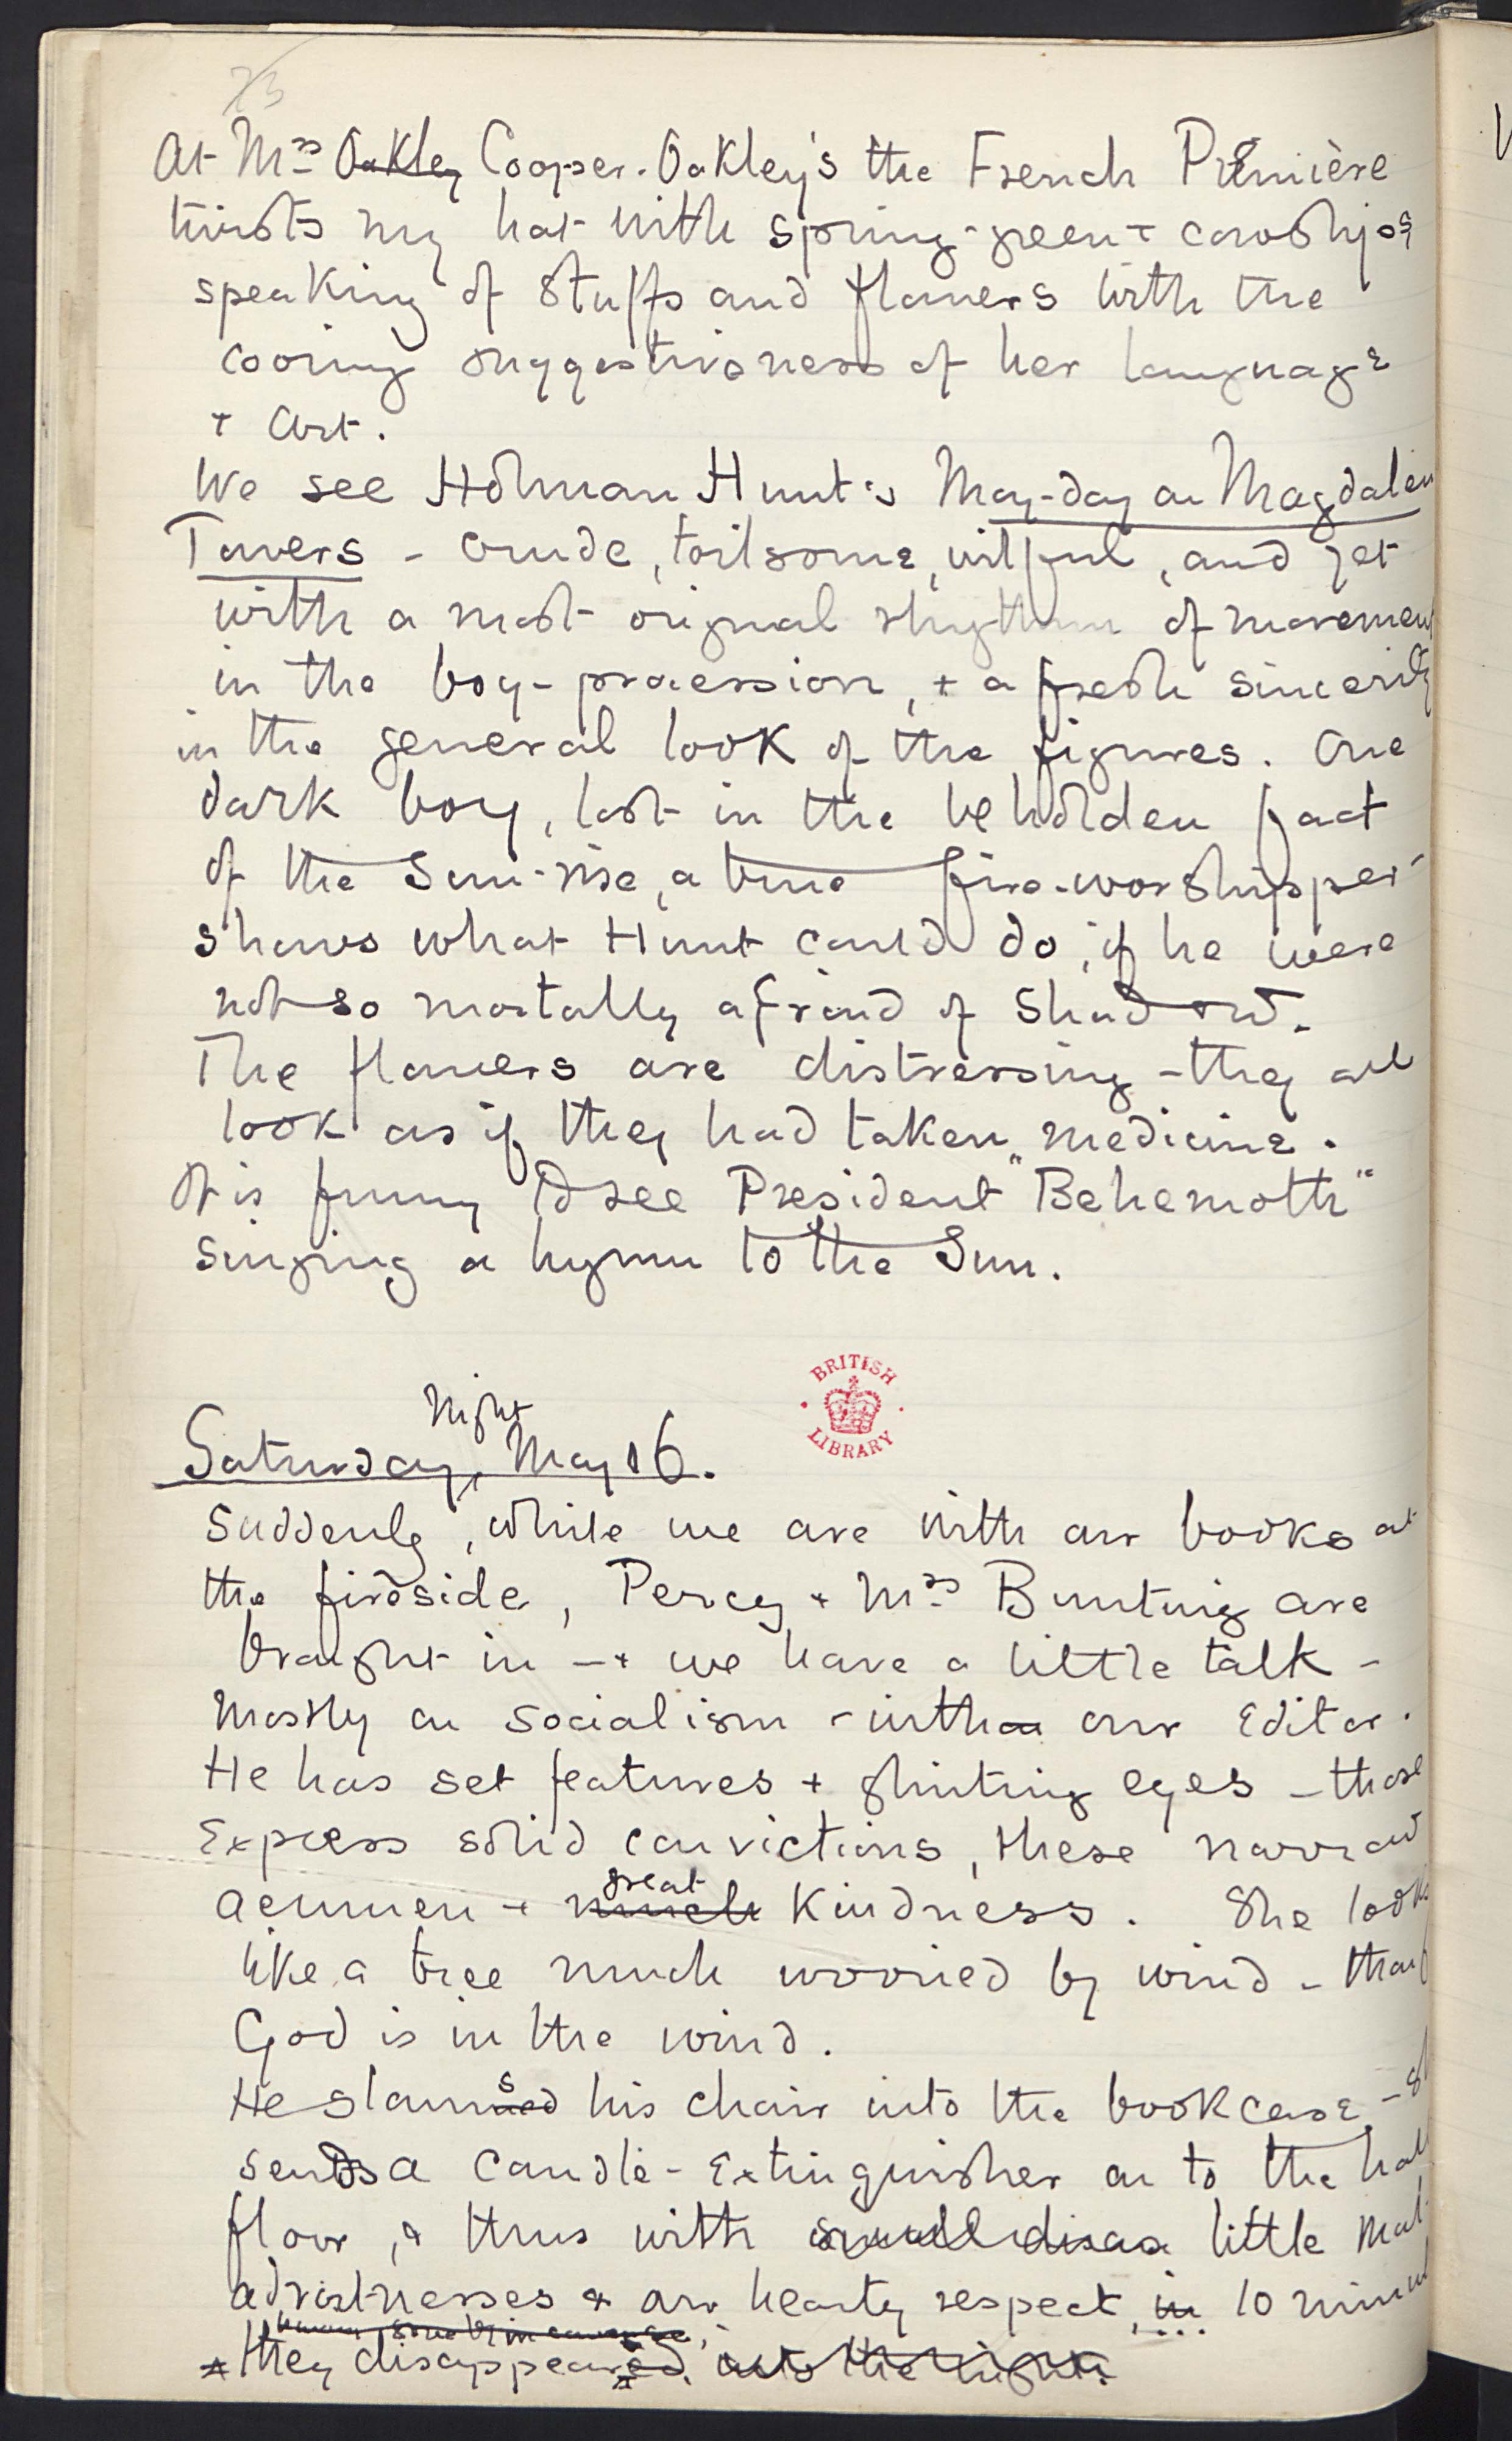 73
At Mrs Oakley Cooper-Oakley's the French Première
twists my hat with spring-green + cowslips,
speaking of stuffs and flowers with the
cooing suggestiveness of her language
+ art.
We see Holman Hunt's May-day on Magdalen
Towers - crude, toilsome, wilful, and yet
with a most original rhythm of movement
in the boy-procession, + a fresh sincerity
in the general look of the figures. One
dark boy, lost in the beholden fact
of the Sun-rise, a true fire-worshipper
shows what Hunt could do, if he were
not so mortally afraid of shadow.
The flowers are distressing - they all
look as if they had taken medicine.
It is funny to see President "Behemoth"
singing a hymn to the Sun.
BRITISH
LIBRARY
Night
Saturday, May 16.
Suddenly, while we are with our books at
the fireside, Percy + Mrs Bunting are
brought in - + we have a little talk -
mostly on Socialism - with our Editor.
He has set features + glinting eyes - those
Express solid convictions, these narrow
great
acumen + much kindness. She looks
like a tree much worried by wind - though
God is in the wind.
He slams his chair into the bookcase -
sends a candle-extinguisher on to the hall
floor, + thus with small disas little mal
adroitnesses + our hearty respect, in 10 minutes
they disappeared. into the night.